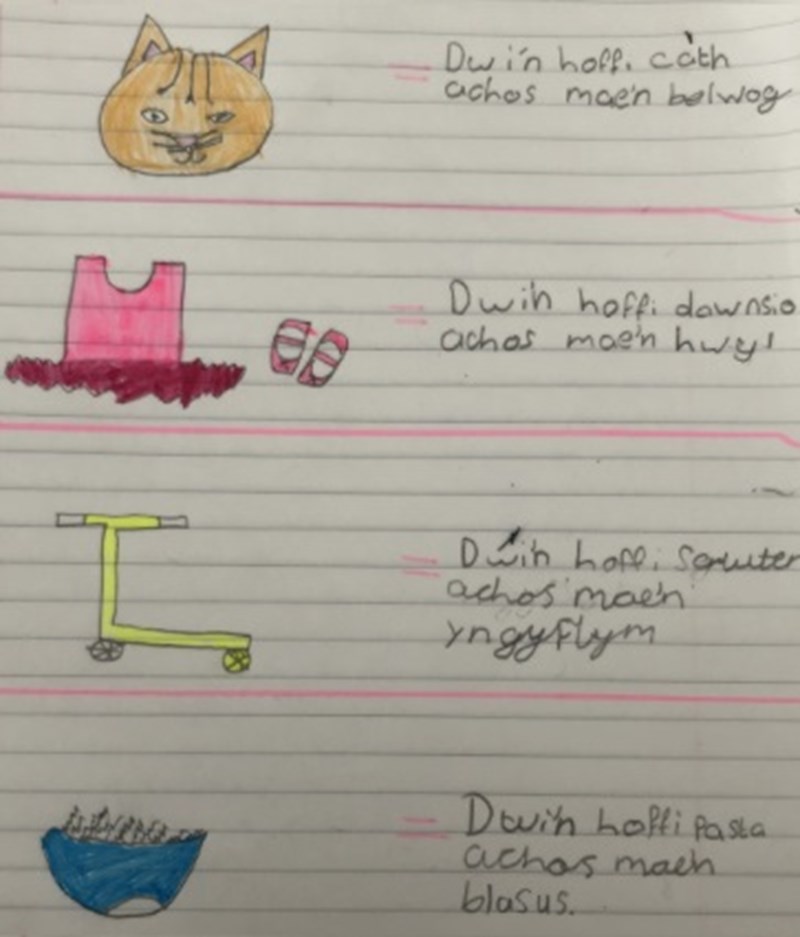 = Dwi'n hoffi càth
achos mae'n belwog
= Dwi'n hoffi dawnsio
achos mae'n hwyl
= Dwi'n hoffi scwuter
achos mae'n
yngyflym
= Dwi'n hoffi pasta
achos mae'n
blasus.